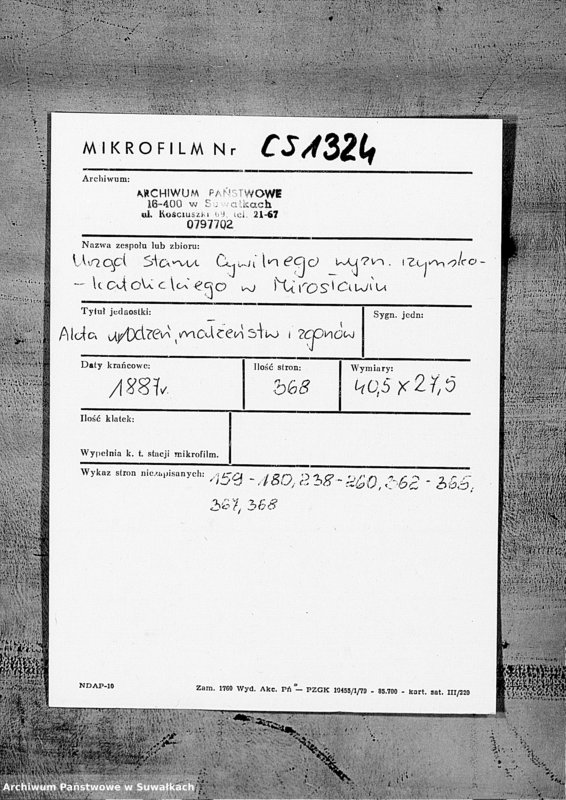 MIKROFILM Nr CS1324
Archiwum:
ARCHIWUM PAŃSTWOWE
16-400 w Suwałkach
ul. Kościuszki 69, tel. 21-67
0797702
Nazwa zespołu lub zbioru:
Urząd Stanu Cywilnego wyzn. rzymsko-
-katolickiego w Mirosławiu
Tytuł jednostki:
Akta urodzeń, małżeństw i zgonów
Sygn. jedn:
Daty krańcowe:
1887r.
Ilość stron:
368
Wymiary:
40,5 x 27,5
Ilość klatek:
Wypełnia k. t. stacji mikrofilm.
Wykaz stron niezapisanych: 159-180, 238-260, 362-365,
367, 368
NDAP-10
Zam. 1760 Wyd. Akc. Pń — PZGK 19455/1/79 - 85.700 - kart. sat. III/220
Archiwum Państwowe w Suwałkach